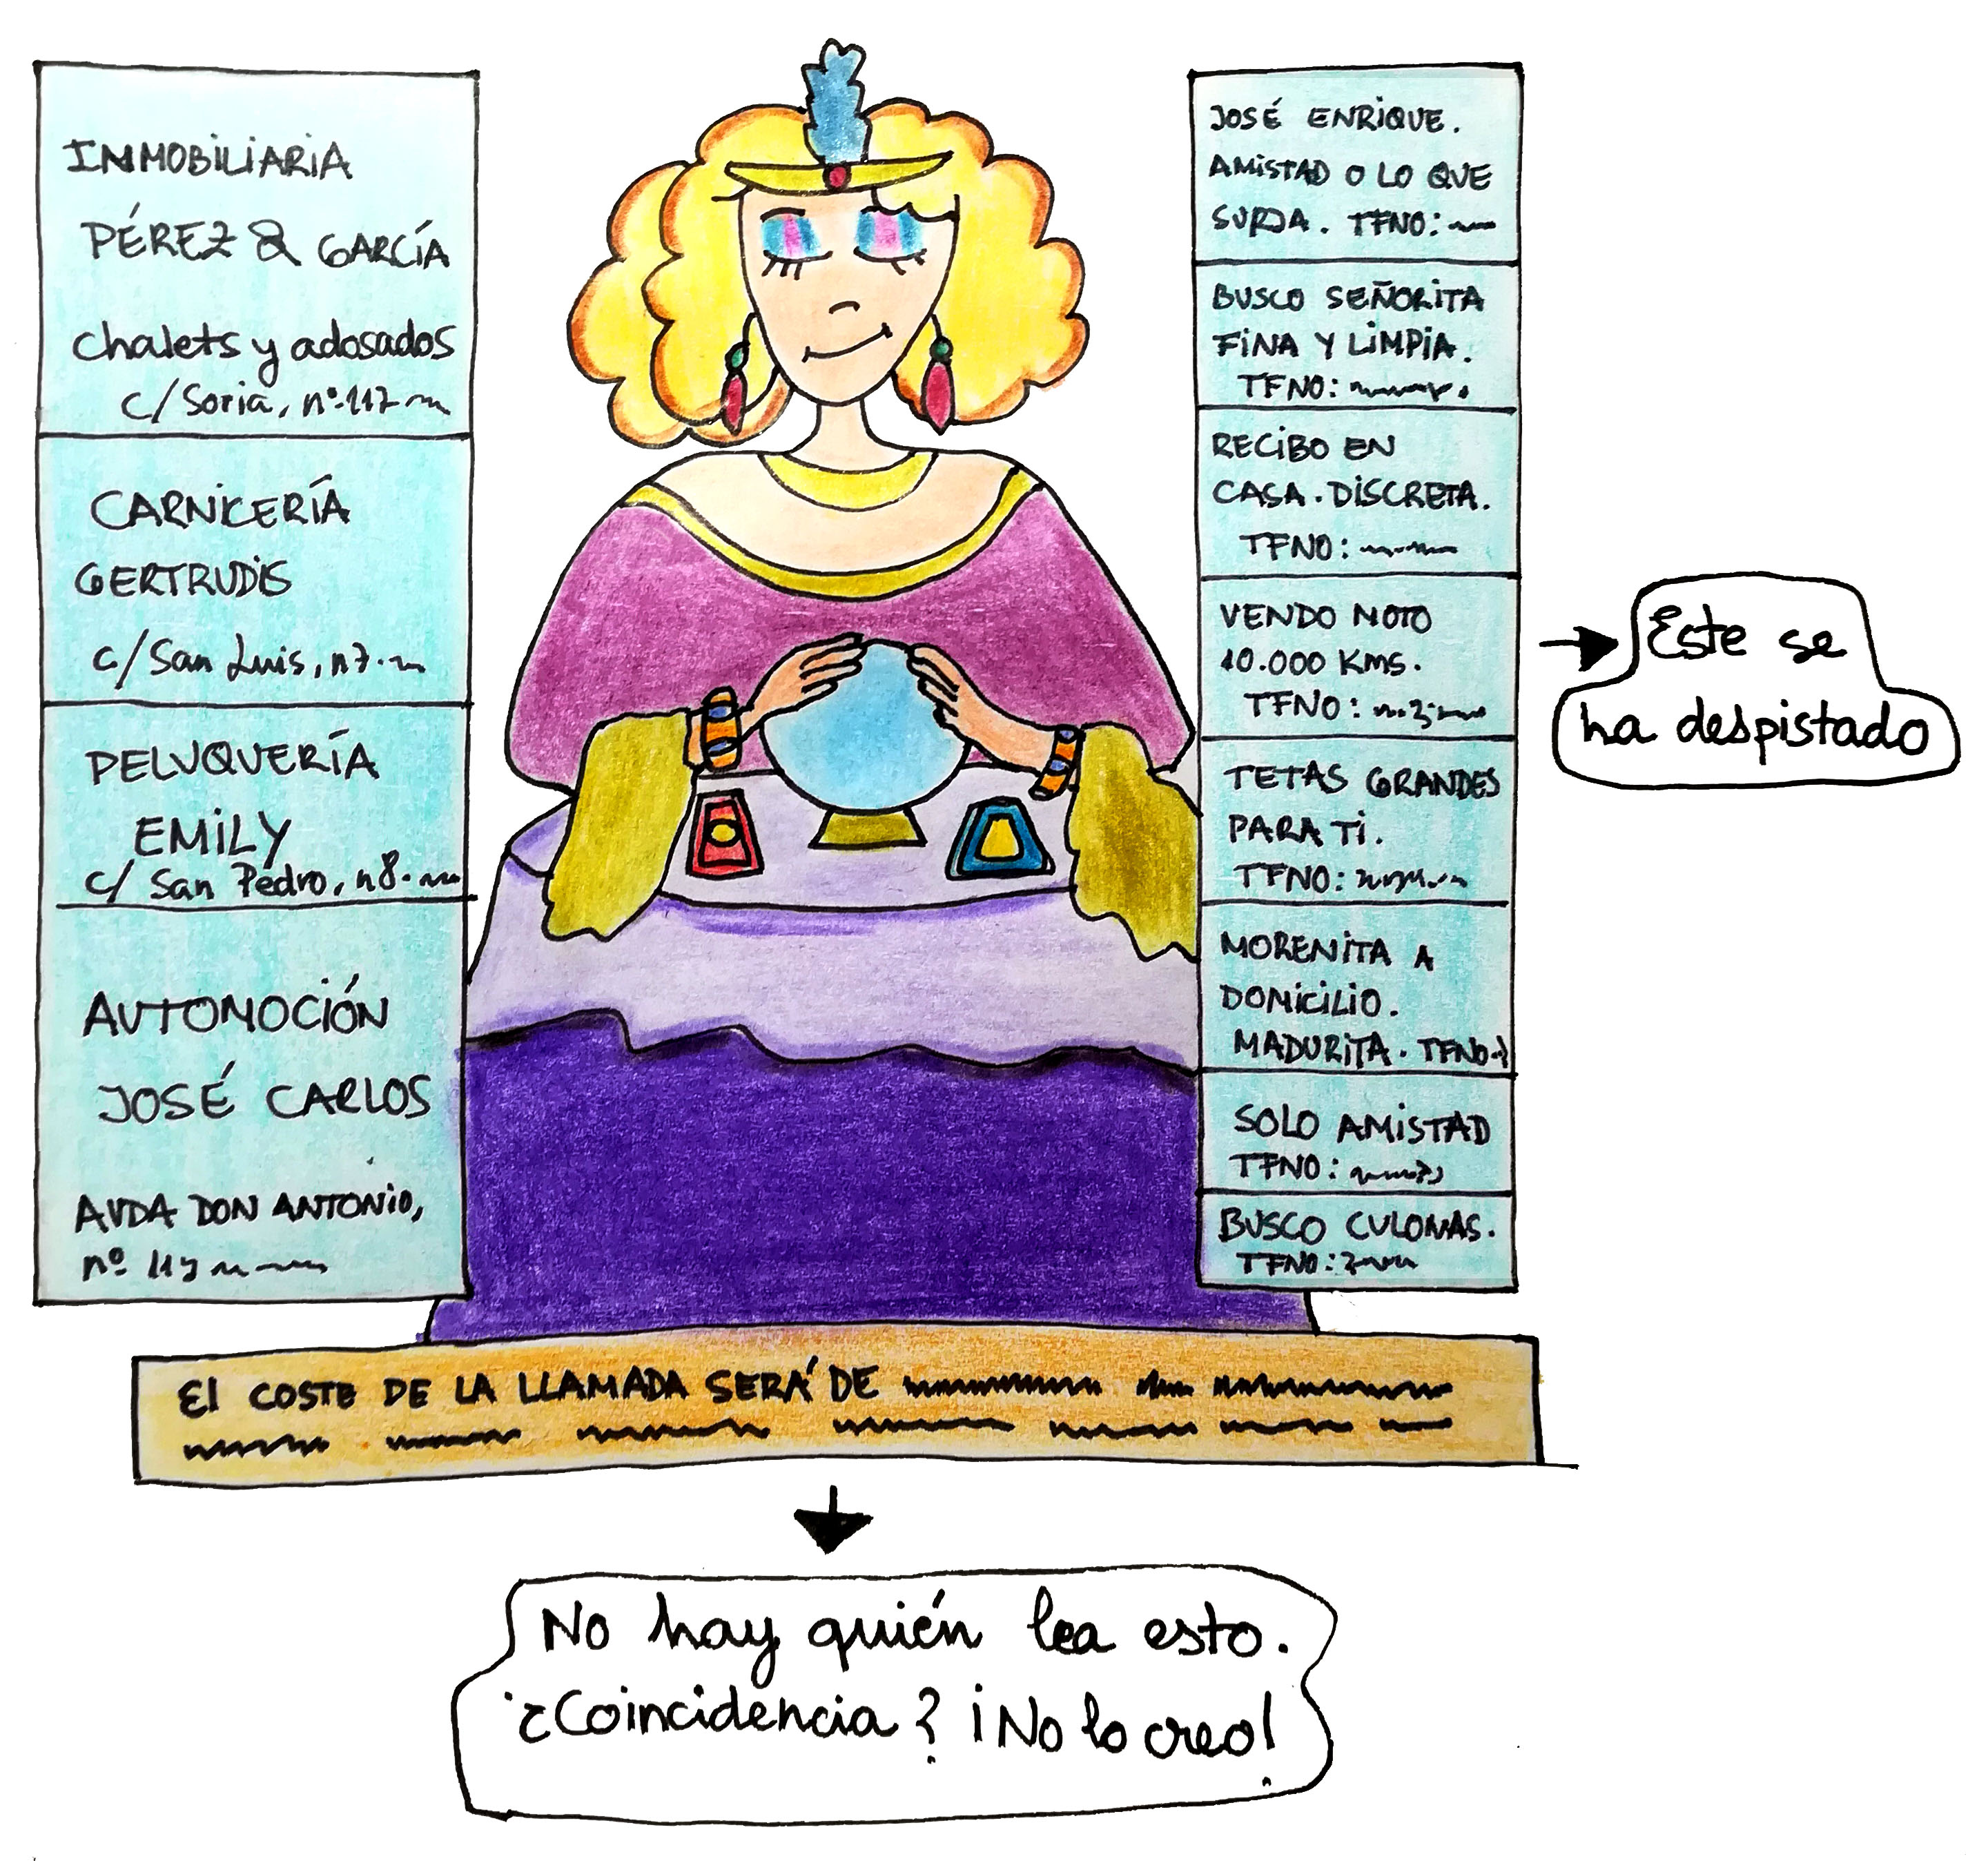 INMOBILIARIA
PÉREZ & GARCÍA
Chalets y adosados
C/ Soria, nº 117
CARNICERÍA
GERTRUDIS
C/ San Luis, n7.
PELUQUERÍA
EMILY
C/ San Pedro, n8.
AUTOMOCIÓN
JOSÉ CARLOS
AVDA DON ANTONIO,
nº 11
JOSÉ ENRIQUE.
AMISTAD O LO QUE
SURJA. TFNO:
BUSCO SEÑORITA
FINA Y LIMPIA.
TFNO:
RECIBO EN
CASA. DISCRETA.
TFNO:
VENDO MOTO
10.000 KMS.
TFNO:
TETAS GRANDES
PARA TI.
TFNO:
MORENITA A
DOMICILIO.
MADURITA. TFNO
SOLO AMISTAD
TFNO:
BUSCO CULONAS.
TFNO:
Este se
ha despistado
El COSTE DE LA LLAMADA SERÁ DE
No hay quién lea esto.
¿Coincidencia? ¡No lo creo!